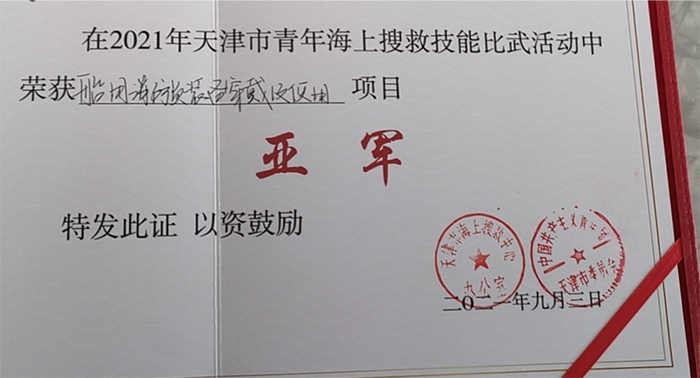 在2021年天津市青年海上搜救技能比武活动中
荣获船用消防装备穿戴及使用项目
亚军
特发此证 以资鼓励
天津市海上搜救中心
办公室
中国共产主义青年团
天津市委员会
二〇二一年九月三日